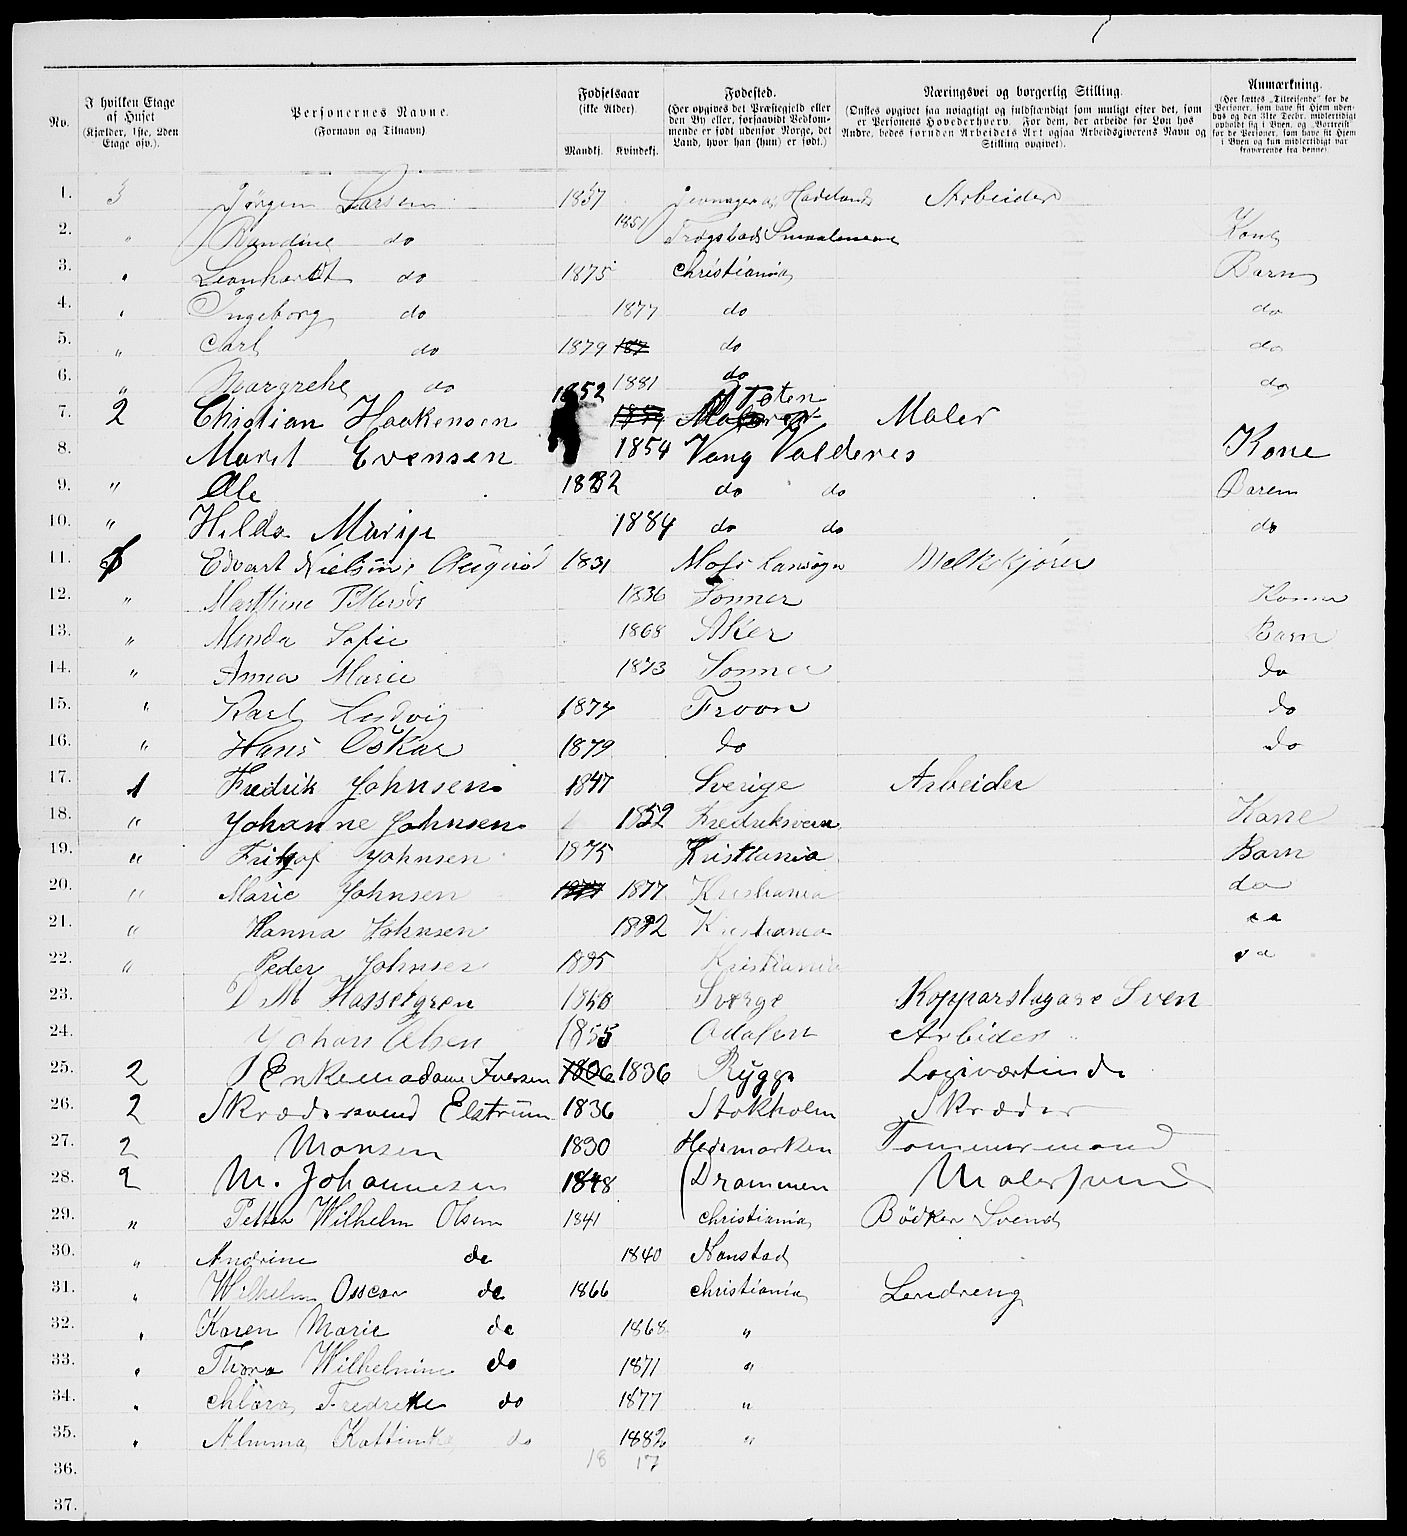 No. | I hvilken Etage af Huset (Kjælder, 1ste, 2den Etage osv.). | Personernes Navne. (Fornavn og Tilnavn) | Fødselsaar (ikke Alder). Mandkj. | Kvindekj. | Fødested. (Her opgives det Præstegjeld eller den By eller, forsaavidt Vedkommende er født udenfor Norge, det Land, hvor han (hun) er født.) | Næringsvei og borgerlig Stilling. (Ønskes opgivet saa nøiagtigt og fuldstændigt som muligt efter det, som er Personens Hovederhverv. For dem, der arbeide for Løn hos Andre, bedes foruden Arbeidets Art ogsaa Arbeidsgiverens Navn og Stilling opgivet). | Anmærkning. (Her sættes „Tilreisende" for de Personer, som have sit Hjem udenbys og den 31te Decbr. midlertidigt opholdt sig i Byen, og „Bortreist" for de Personer, som have sit Hjem i Byen og kun midlertidigt var fraværende fra denne).
1. 3 Jørgen Larsen 1857 Jevnager Hadeland Arbeider
2. " Randine do 1851 Trøgstad Smaalenene Kone
3. " Leonhardt do 1875 Christiania Barn
4. " Ingeborg do 1877 do do
5. " Carl do 1879 187 do do
6. " Margrehe do 1881 do do
7. 2 Christian Haakensen 1852 Toten Maler
8. Marit Evensen 1854 Vang Valderes Kone
9. " Ole 1882 do do Baren
10. " Hilda Marije 1884 do do do
11. Edvart Nielsen 1831 Moss Melkekjører
12. " Marthine 1836 Sonner Konna
13. " Minda Sofie 1868 Aker Barn
14. " Anna Marie 1873 Sonner do
15. " Karl Ludvig 1877 Froon do
16. " Hans Oskar 1879 do do
17. 1 Fredrik Johnsen 1847 Sverige Arbeider
18. " Johanne Johnsen 1852 Fredriksværn Kone
19. " Frithjof Johnsen 1875 Kristiania Barn
20. " Marie Johnsen 1877 1877 Kristiania do
21. " Hanna Johnsen 1882 Kristiania "
22. " Peder Johnsen 1885 Kristiania "
23. D M Hasselgren 1858 Sverge Kopparslagare Sven
24. Johan Olsen 1855 Odalen Arbider
25. 2 Enkemadame Iversen 1806 1836 Rygge Logiværtinde
26. 2 Skrædersvend Elstrøm 1836 Stokholm Skræder
27. 2 Monsen 1830 Hedemarken Tømmermand
28. 2 M. Johannesen 1848 Drammen Malersvend
29. " Petter Wilhelm Olsen 1841 Christiania Bødker Svend
30. " Andrine do 1840 Nanstad
31. " Wilhelm Osscar do 1866 Christiania Leredreng
32. " Karen Marie do 1868 "
33. " Thora Wilhelmine do 1871 "
34. " Chlara Fredrikke do 1877 "
35. " Almma Kattinka do 1882 "
36. 18 17
37.